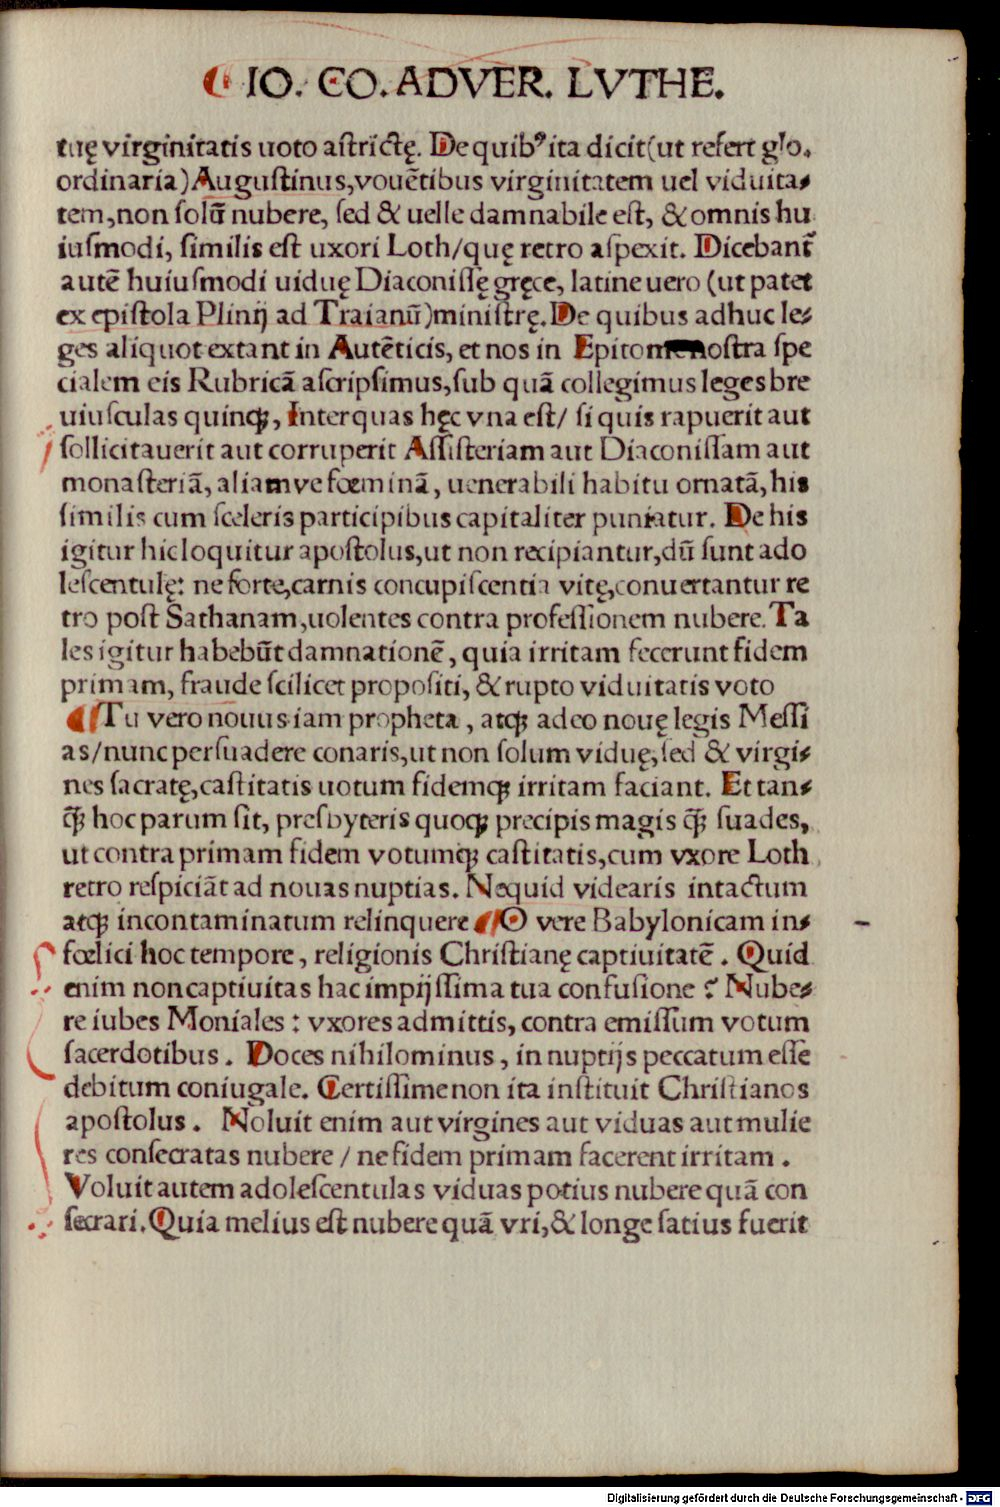 IO. CO. ADVER. LVTHE.
tuę virginitatis uoto aſtrictę. De quibꝰ ita dicit(ut refert glo.
ordinaria) Auguſtinus,vouētibus virginitatem uel viduita⸗
tem,non ſolū nubere, ſed & uelle damnabile eſt, & omnis hu
iuſmodi, ſimilis eſt uxori Loth/quę retro aſpexit. Dicebanť
autē huiuſmodi uiduę Diaconiſſę gręce, latine uero (ut patet
ex epiſtola Plinij ad Traianū)miniſtrę. De quibus adhuc le⸗
ges aliquot extant in Autēticis, et nos in Epitome noſtra ſpe
cialem eis Rubricā aſcripſimus,ſub quā collegimus leges bre
uiuſculas quinqꝫ, Inter quas hęc vna eſt/ ſi quis rapuerit aut
ſollicitauerit aut corruperit Aſſiſteriam aut Diaconiſſam aut
monaſteriā, aliamve fœminā, uenerabili habitu ornatā, his
ſimilis cum ſceleris participibus capitaliter puniatur. De his
igitur hic loquitur apoſtolus,ut non recipiantur,dū ſunt ado
leſcentulę: ne forte,carnis concupiſcentia vitę,conuertantur re
tro poſt Sathanam,uolentes contra profeſſionem nubere. Ta
les igitur habebūt damnationē, quia irritam fecerunt fidem
primam, fraude ſcilicet propoſiti, & rupto viduitatis voto
Tu vero nouus iam propheta, atqꝫ adeo nouę legis Meſſi
as/nunc perſuadere conaris,ut non ſolum viduę, ſed & virgi⸗
nes ſacratę,caſtitatis uotum fidemqꝫ irritam faciant. Et tan⸗
q̄ꝫ hoc parum ſit, preſbyteris quoqꝫ precipis magis q̄ꝫ ſuades,
ut contra primam fidem votumqꝫ caſtitatis,cum vxore Loth
retro reſpiciāt ad nouas nuptias. Nequid videaris intactum
atqꝫ incontaminatum relinquere O vere Babylonicam in⸗
fœlici hoc tempore, religionis Chriſtianę captiuitatē. Quid
enim non captiuitas hac impijſſima tua confuſione? Nube⸗
re iubes Moniales: vxores admittis, contra emiſſum votum
ſacerdotibus. Doces nihilominus, in nuptijs peccatum eſſe
debitum coniugale. Certiſſime non ita inſtituit Chriſtianos
apoſtolus. Noluit enim aut virgines aut viduas aut mulie
res conſecratas nubere / ne fidem primam facerent irritam.
Voluit autem adoleſcentulas viduas potius nubere quā con
ſecrari. Quia melius eſt nubere quā vri,& longe ſatius fuerit
Digitalisierung gefördert durch die Deutsche Forschungsgemeinschaft - DFG